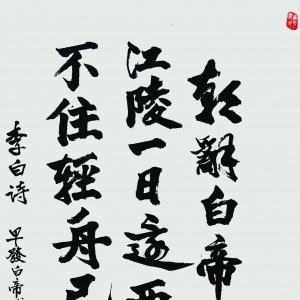 朝辞白帝
江陵一日还
不住轻舟已
李白诗 早发白帝